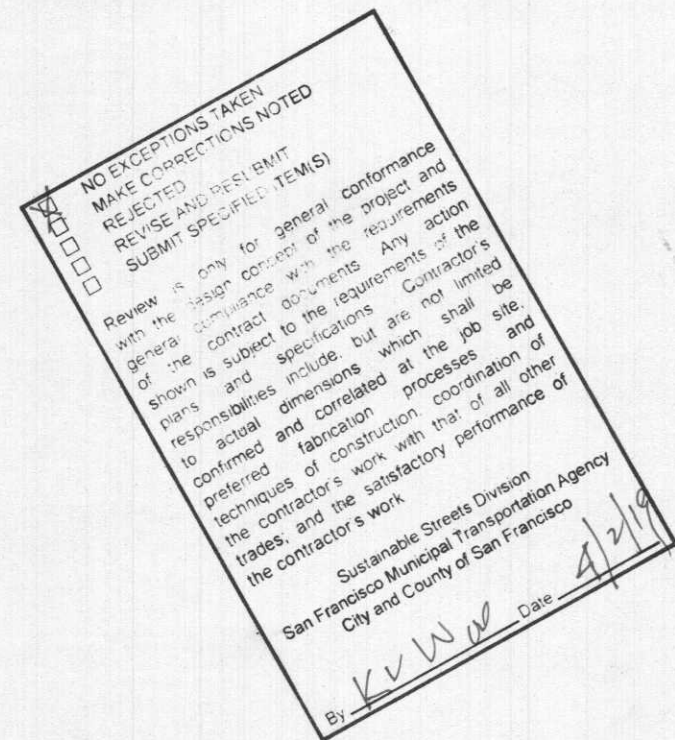 ☒ NO EXCEPTIONS TAKEN
☐ MAKE CORRECTIONS NOTED
☐ REJECTED
☐ REVISE AND RESUBMIT
☐ SUBMIT SPECIFIED ITEM(S)
Review is only for general conformance
with the design concept of the project and
general compliance with the requirements
of the contract documents Any action
shown is subject to the requirements of the
plans and specifications Contractor's
responsibilities include, but are not limited
to actual dimensions which shall be
confirmed and correlated at the job site,
preferred fabrication processes and
techniques of construction, coordination of
the contractor's work with that of all other
trades; and the satisfactory performance of
the contractor's work
Sustainable Streets Division
San Francisco Municipal Transportation Agency
City and County of San Francisco
By Date 4/2/19